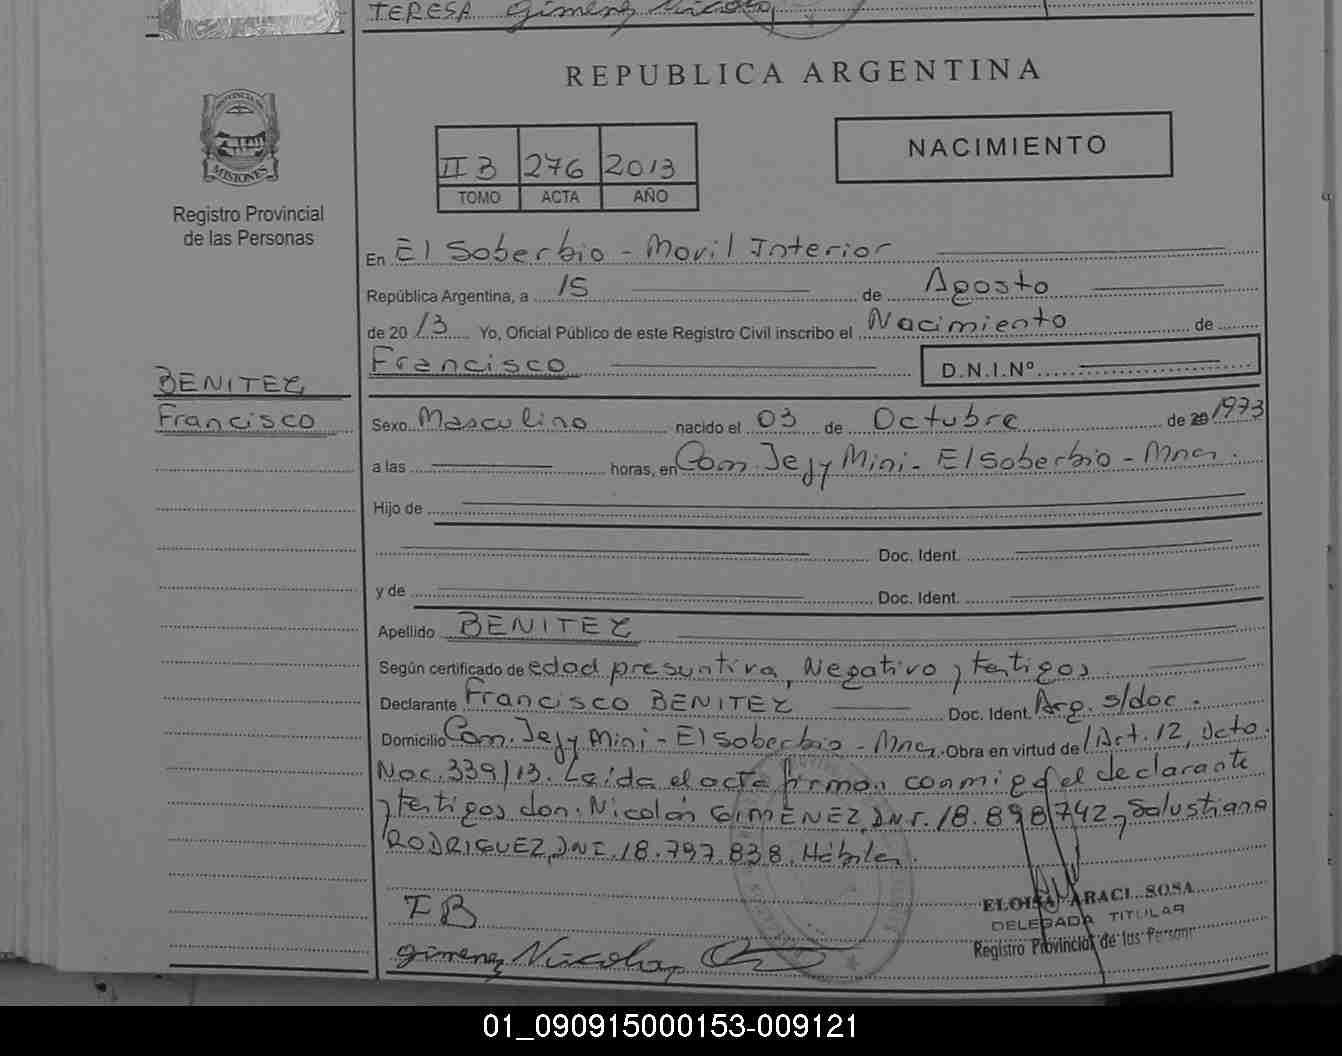 TERESA Gimenez Nicolas
REPUBLICA ARGENTINA
PROVINCIA DE
MISIONES
Registro Provincial
de las Personas
II B 276 2013
TOMO ACTA AÑO
NACIMIENTO
En El Soberbio - Movil Interior
República Argentina, a 15 de Agosto
de 2013 Yo, Oficial Público de este Registro Civil inscribo el Nacimiento de
Francisco D.N.I.Nº
BENITEZ
Francisco
Sexo Masculino nacido el 03 de Octubre de 20 1973
a las horas, en Com. Jejy Mini - El Soberbio - Mnes.
Hijo de
Doc. Ident.
y de Doc. Ident.
Apellido BENITEZ
Según certificado de edad presuntiva, Negativo y testigos
Declarante Francisco BENITEZ Doc. Ident. Arg. s/doc.
Domicilio Com. Jejy Mini - El Soberbio - Mnes. Obra en virtud de Art. 12, Dcto.
Nac. 339/13. Leida el acta firman conmigo el declarante
y testigos don: Nicolás GIMENEZ, DNI. 18.898.742 y Salustiana
RODRIGUEZ, DNI. 18.797.838. Hábiles.
IB
Gimenez Nicolas
ELOISA ARACI SOSA
DELEGADA TITULAR
Registro Provincial de las Personas
01_090915000153-009121